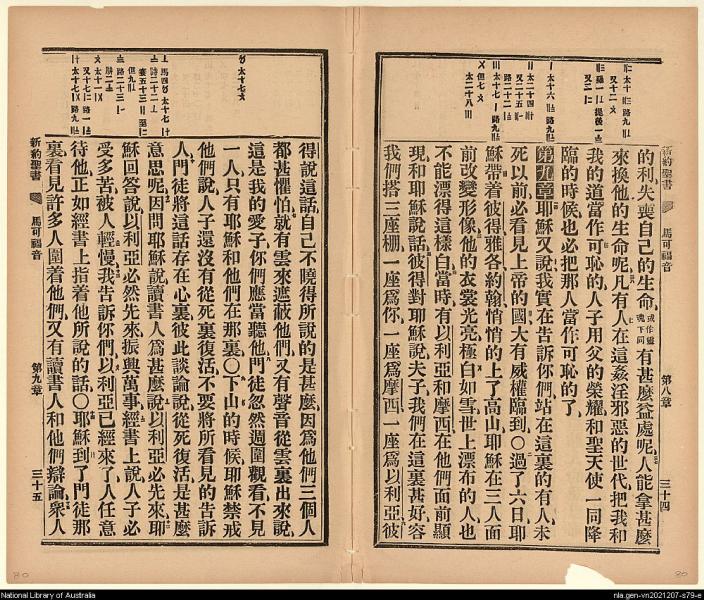 的利失喪自己的生命或作靈魂下同有甚麼益處呢人能拿甚麼
來換他的生命呢凡有人在這姦淫邪惡的世代把我和
我的道當作可恥的人子用父的榮耀和聖天使一同降
臨的時候也必把那人當作可恥的了
第九章耶穌又說我實在告訴你們站在這裏的有人未
死以前必看見上帝的國大有威權臨到〇過了六日耶
穌帶着彼得雅各約翰悄悄的上了高山耶穌在三人面
前改變形像他的衣裳光亮極白如雪世上漂布的人也
不能漂得這樣白當時有以利亞和摩西在他們面前顯
現和耶穌說話彼得對耶穌說夫子我們在這裏甚好容
我們搭三座棚一座爲你一座爲摩西一座爲以利亞彼
新約聖書
馬可福音
第八章
三十四
得說這話自己不曉得所說的是甚麼因爲他們三個人
都甚懼怕就有雲來遮蔽他們又有聲音從雲裏出來說
這是我的愛子你們應當聽他門徒忽然週圍觀看不見
一人只有耶穌和他們在那裏〇下山的時候耶穌禁戒
他們說人子還沒有從死裏復活不要將所看見的告訴
人門徒將這話存在心裏彼此談論說從死復活是甚麼
意思呢因問耶穌說讀書人爲甚麼說以利亞必先來耶
穌回答說以利亞必然先來振興萬事經書上說人子必
受多苦被人輕慢我告訴你們以利亞已經來了人任意
待他正如經書上指着他所說的話〇耶穌到了門徒那
裏看見許多人圍着他們又有讀書人和他們辯論衆人
新約聖書
馬可福音
第九章
三十五
National Library of Australia
nla.gen-vn2021207-s79-e